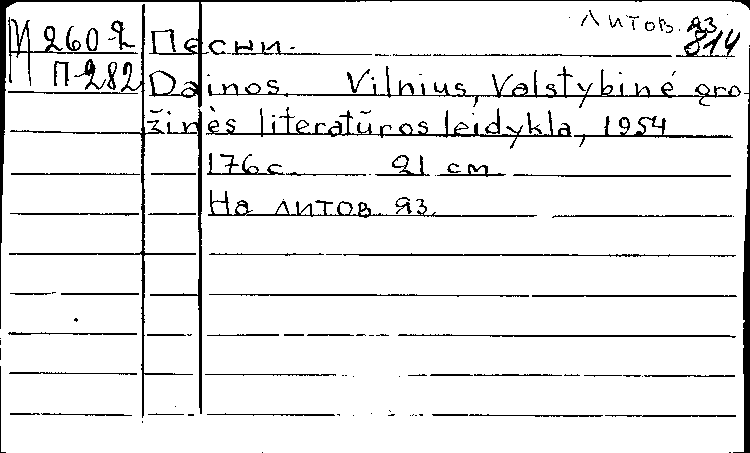 Литов. яз
814
И 260 2 Песни.
П-282 Dainos. Vilnius, Valstybinė gro-
žinės literatūros leidykla, 1954
176 с. 21 см
На литов. яз.